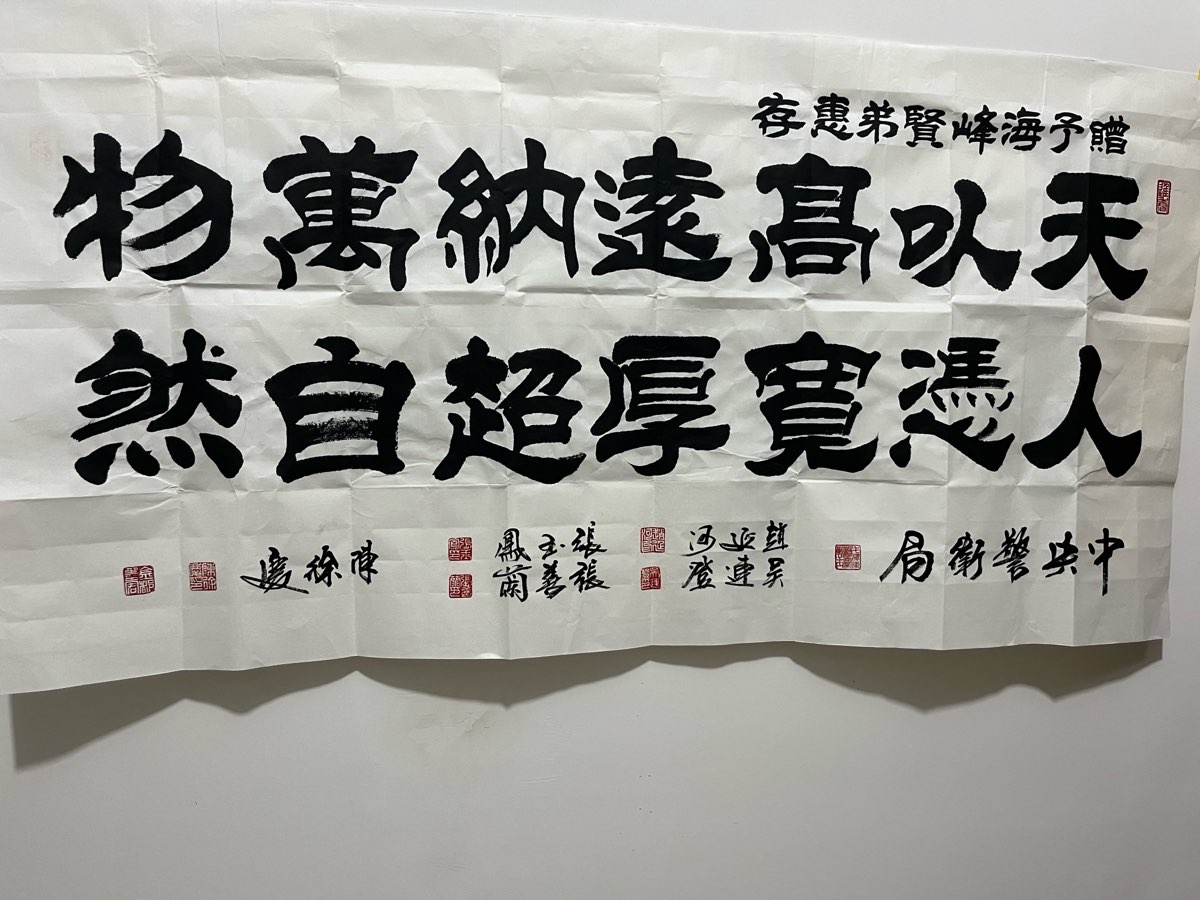 贈予海峰賢弟惠存
天以高遠納萬物
人憑寬厚超自然
中央警衛局
趙延河
吴連登
張玉鳳
張善蘭
陳徐媛